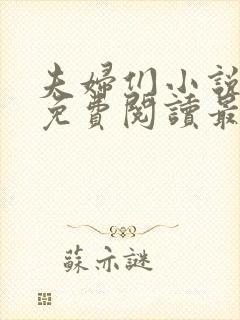 夫婦们小說
免費閱讀最
蘇亦謎